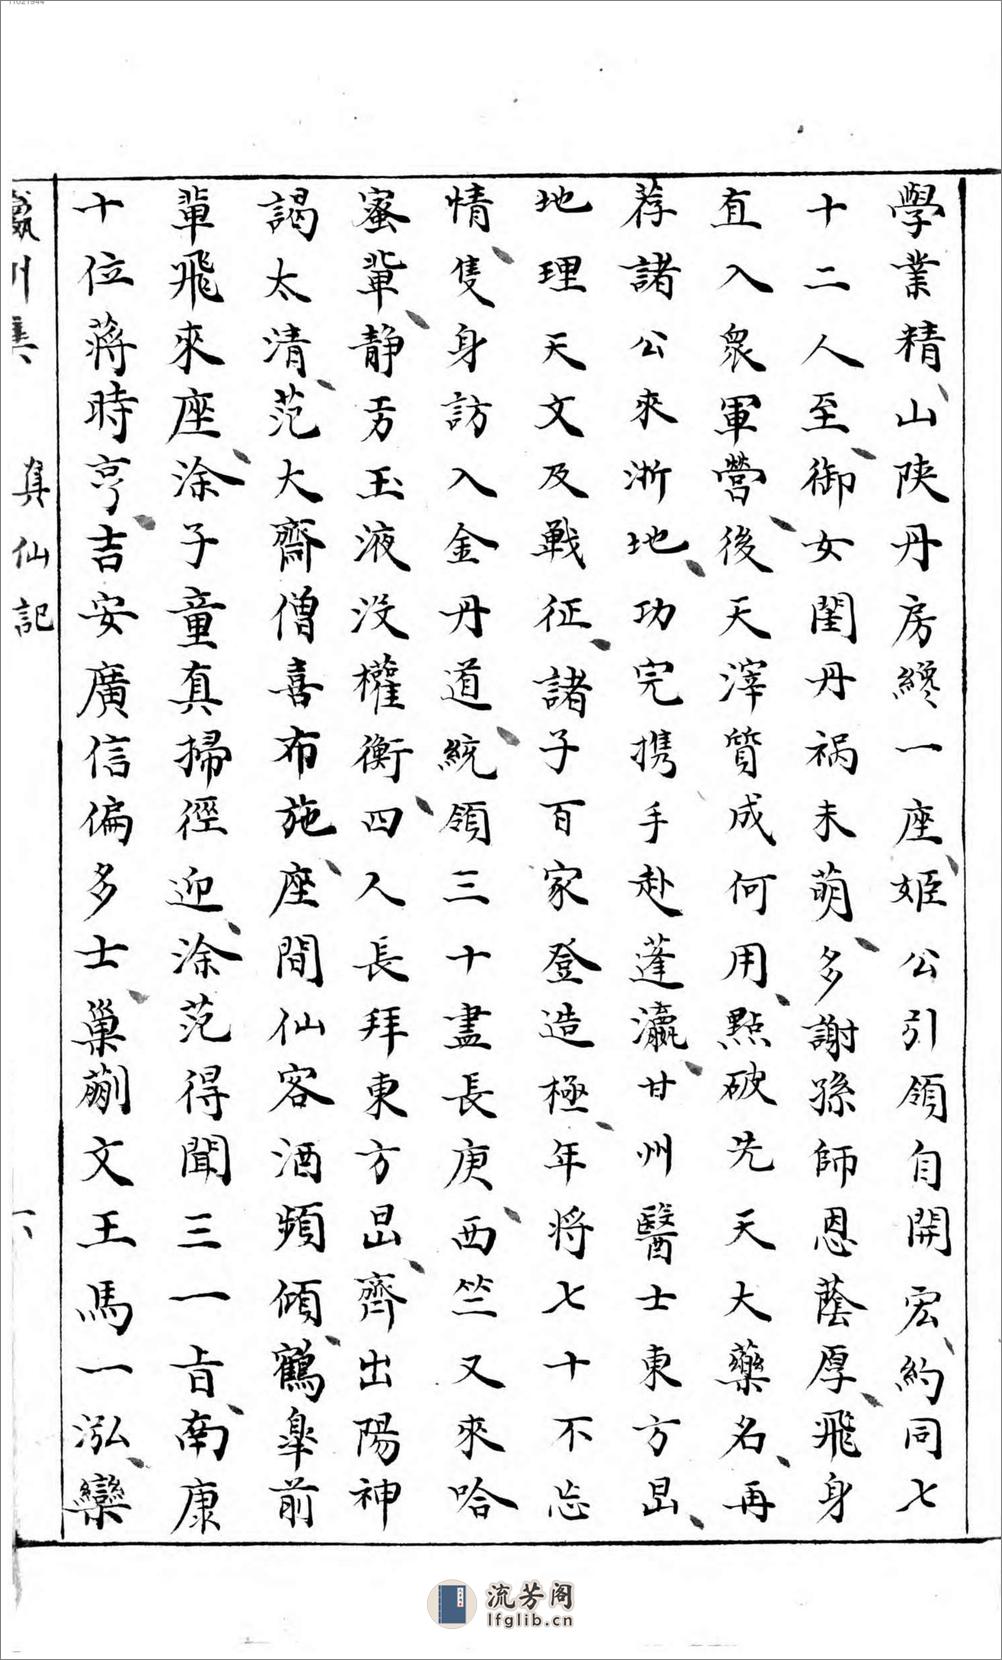 學業精山陝丹房纔一座姬公引領自開宏約同七
十二人至御女閨丹禍未萌多謝孫師恩蔭厚飛身
直入衆軍營後天滓質成何用點破先天大藥名再
荐諸公來浙地功完携手赴蓬瀛甘州醫士東方昷
地理天文及戰征諸子百家登造極年將七十不忘
情隻身訪入金丹道統領三十盡長庚西竺又來哈
蜜輩靜芳玉液没權衡四人長拜東方昷齊出陽神
謁太清范大齋僧喜布施座間仙客酒頻傾鶴皐前
輩飛來座涂子童真掃徑迎涂范得聞三一旨南康
十位蔣時亨吉安廣信偏多士巢蒯文王馬一泓欒
瀛州集 真仙記 六
流芳阁
lfglib.cn